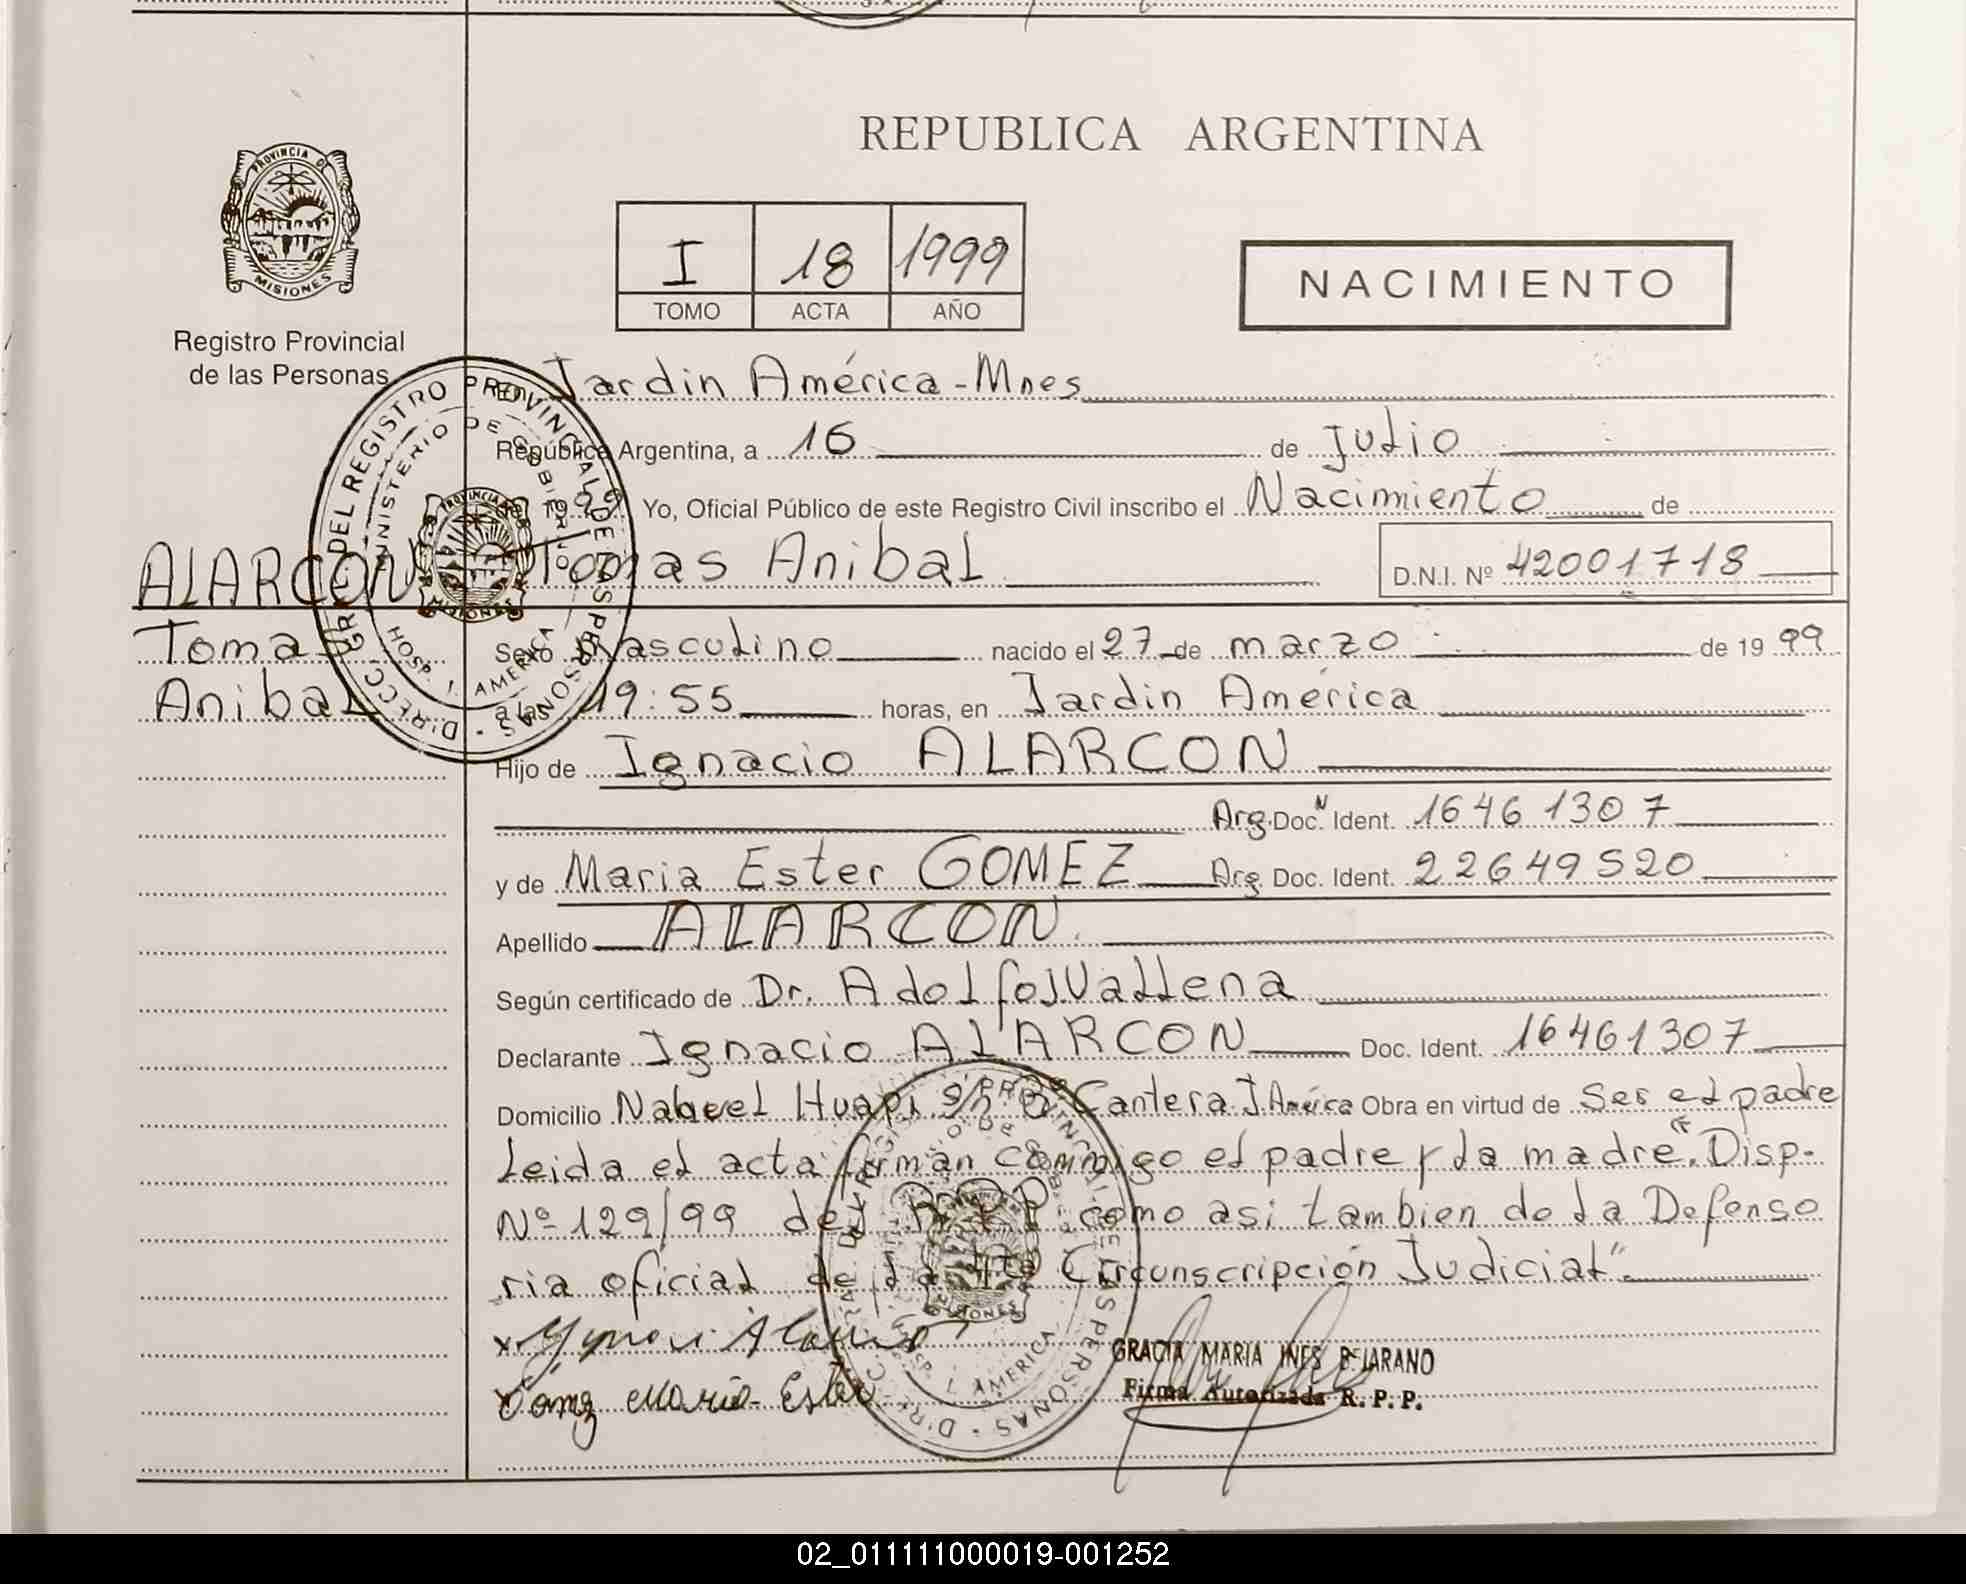 REPUBLICA ARGENTINA
PROVINCIA DE
MISIONES
Registro Provincial
de las Personas
I 18 1999
TOMO ACTA AÑO
NACIMIENTO
En Jardin América - Mnes
República Argentina, a 16 de Julio
de 1999 Yo, Oficial Público de este Registro Civil inscribo el Nacimiento de
Tomas Anibal D.N.I. Nº 42001718
ALARCON
Tomas
Anibal
Sexo Masculino nacido el 27 de marzo de 1999
a las 19:55 horas, en Jardin América
Hijo de Ignacio ALARCON
Arg. Doc. Ident. 16461307
y de Maria Ester GOMEZ Arg. Doc. Ident. 22649520
Apellido ALARCON.
Según certificado de Dr. Adolfo J Vallena
Declarante Ignacio ALARCON Doc. Ident. 16461307
Domicilio Nahuel Huapi s/n Cantera J América Obra en virtud de Ser el padre
Leida el acta firman conmigo el padre y la madre "Disp.
Nº 129/99 del R.P.P como asi tambien de la Defenso
ria oficial de la 4ta Circunscripción Judicial".
GRACIA MARIA INES BEJARANO
Gomez Maria Ester
Firma Autorizada R.P.P.
DIRECC. GRAL. DEL REGISTRO PROVINCIAL DE LAS PERSONAS
MINISTERIO DE GOBIERNO
HOSP. J. AMERICA
02_011111000019-001252